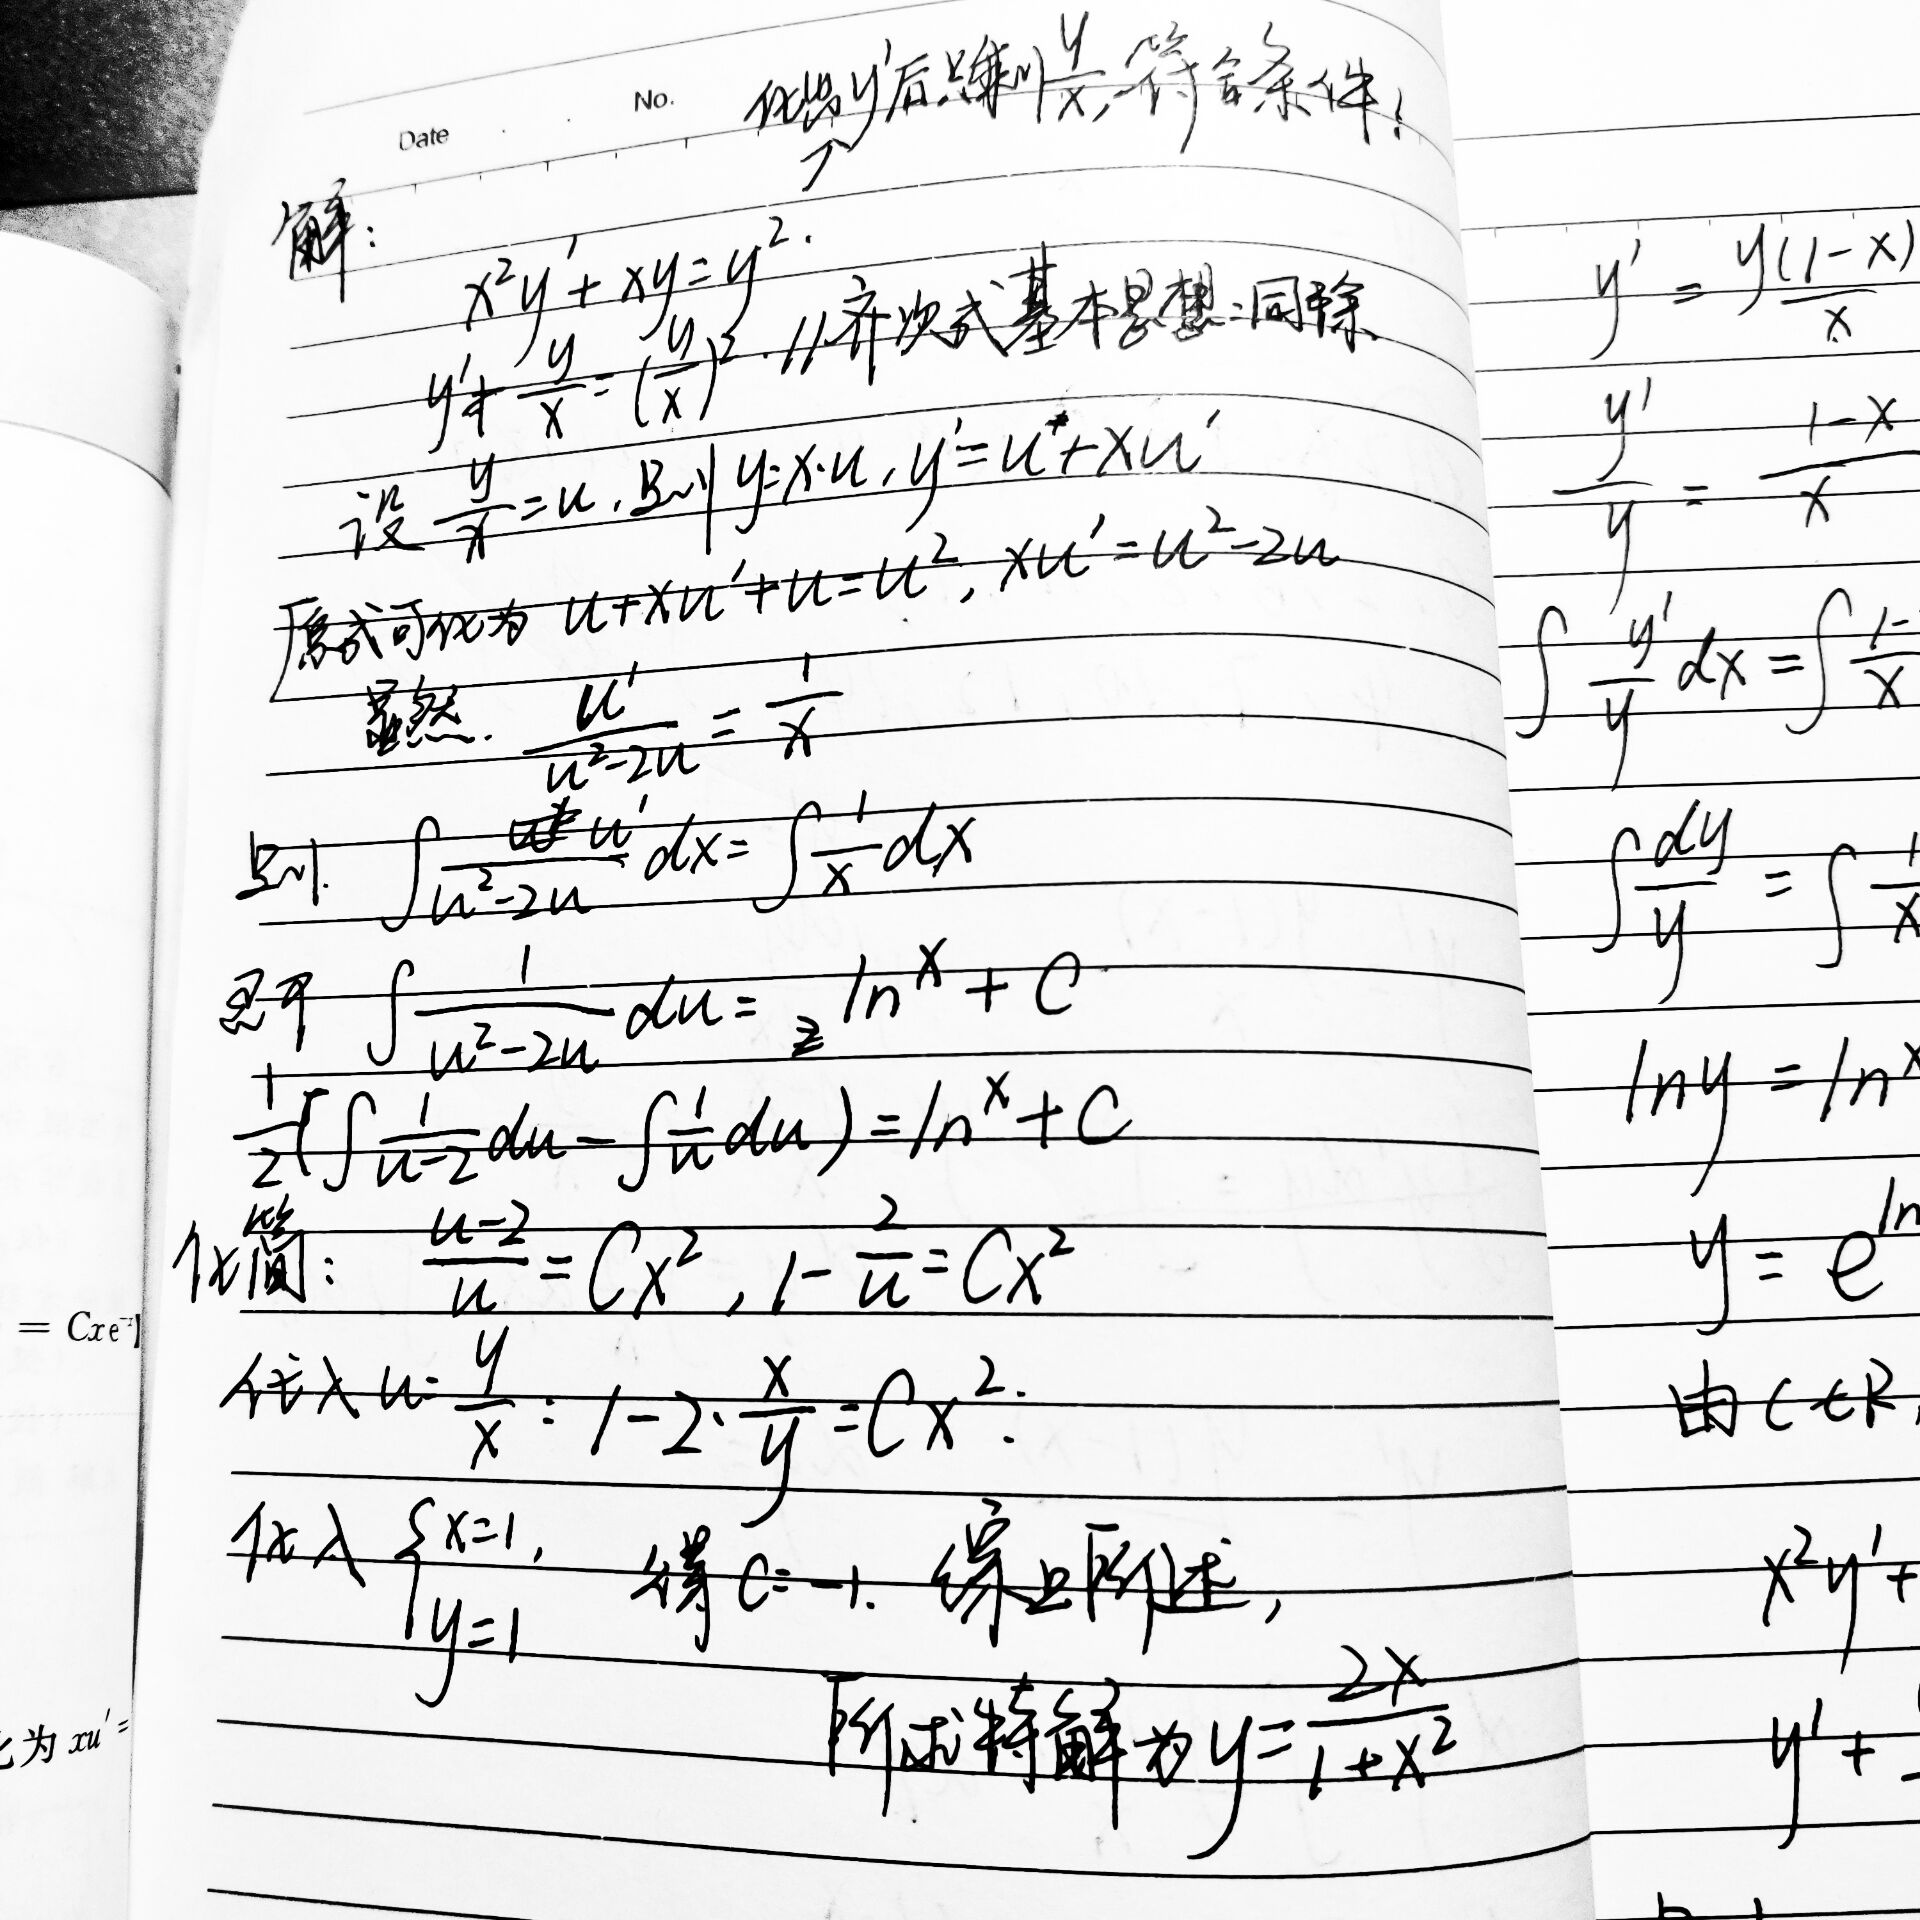 = Cxe⁻
化为 xu′ =
No.
Date
化为y′后只剩y/x,符合条件!
解:
x²y′+xy=y².
y′+y/x=(y/x)². //齐次式基本思想:同除
设 y/x=u,则y=x·u,y′=u+xu′
原式可化为 u+xu′+u=u², xu′=u²-2u
显然. u′/(u²-2u)=1/x
则. ∫u′/(u²-2u) dx=∫1/x dx
即 ∫1/(u²-2u) du= lnx+C
1/2(∫1/(u-2) du-∫1/u du)=lnx+C
化简: (u-2)/u=Cx², 1-2/u=Cx²
代入u=y/x: 1-2·x/y=Cx².
代入 {x=1, y=1 得C=-1. 综上所述,
所求特解为y=2x/(1+x²)
y′ = y(1-x)/x
y′/y = (1-x)/x
∫y′/y dx=∫1-/x
∫dy/y = ∫1/x
lny = lnx
y = e^ln
由C∈R,
x²y′+
y′+